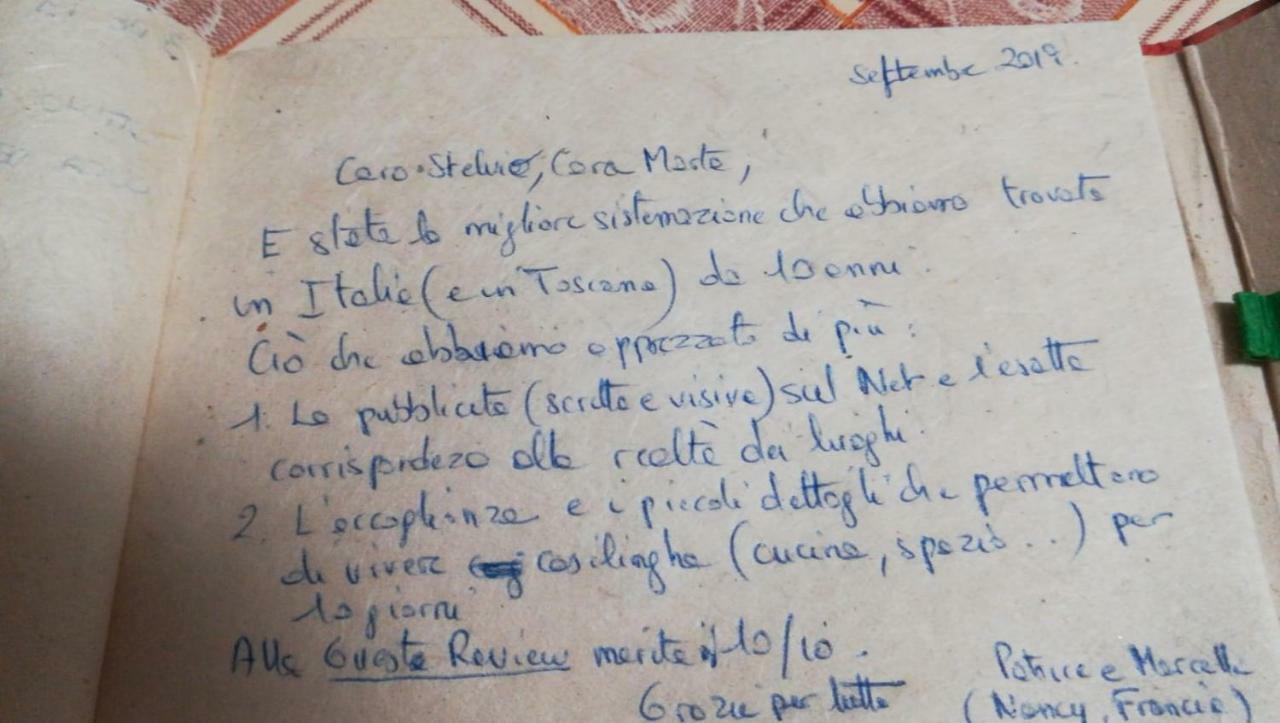 Septembre 2019.
Caro Stelvio, Cara Marta,
E stata la migliore sistemazione che abbiamo trovata
in Italia (e in Toscana) da 10 anni.
Ciò che abbiamo apprezzato di più :
1. La pubblicata (scritta e visiva) sul Net e l'esatta
corrispondeza alla realtà dei luoghi.
2. L'accoglienza e i piccoli dettagli che permettono
di vivere casilinghe (cucina, spazio...) per
10 giorni
Alla Gueste Review merita il 10/10.
Grazie per tutto
Patrice e Marcelle
(Nancy, Francia)